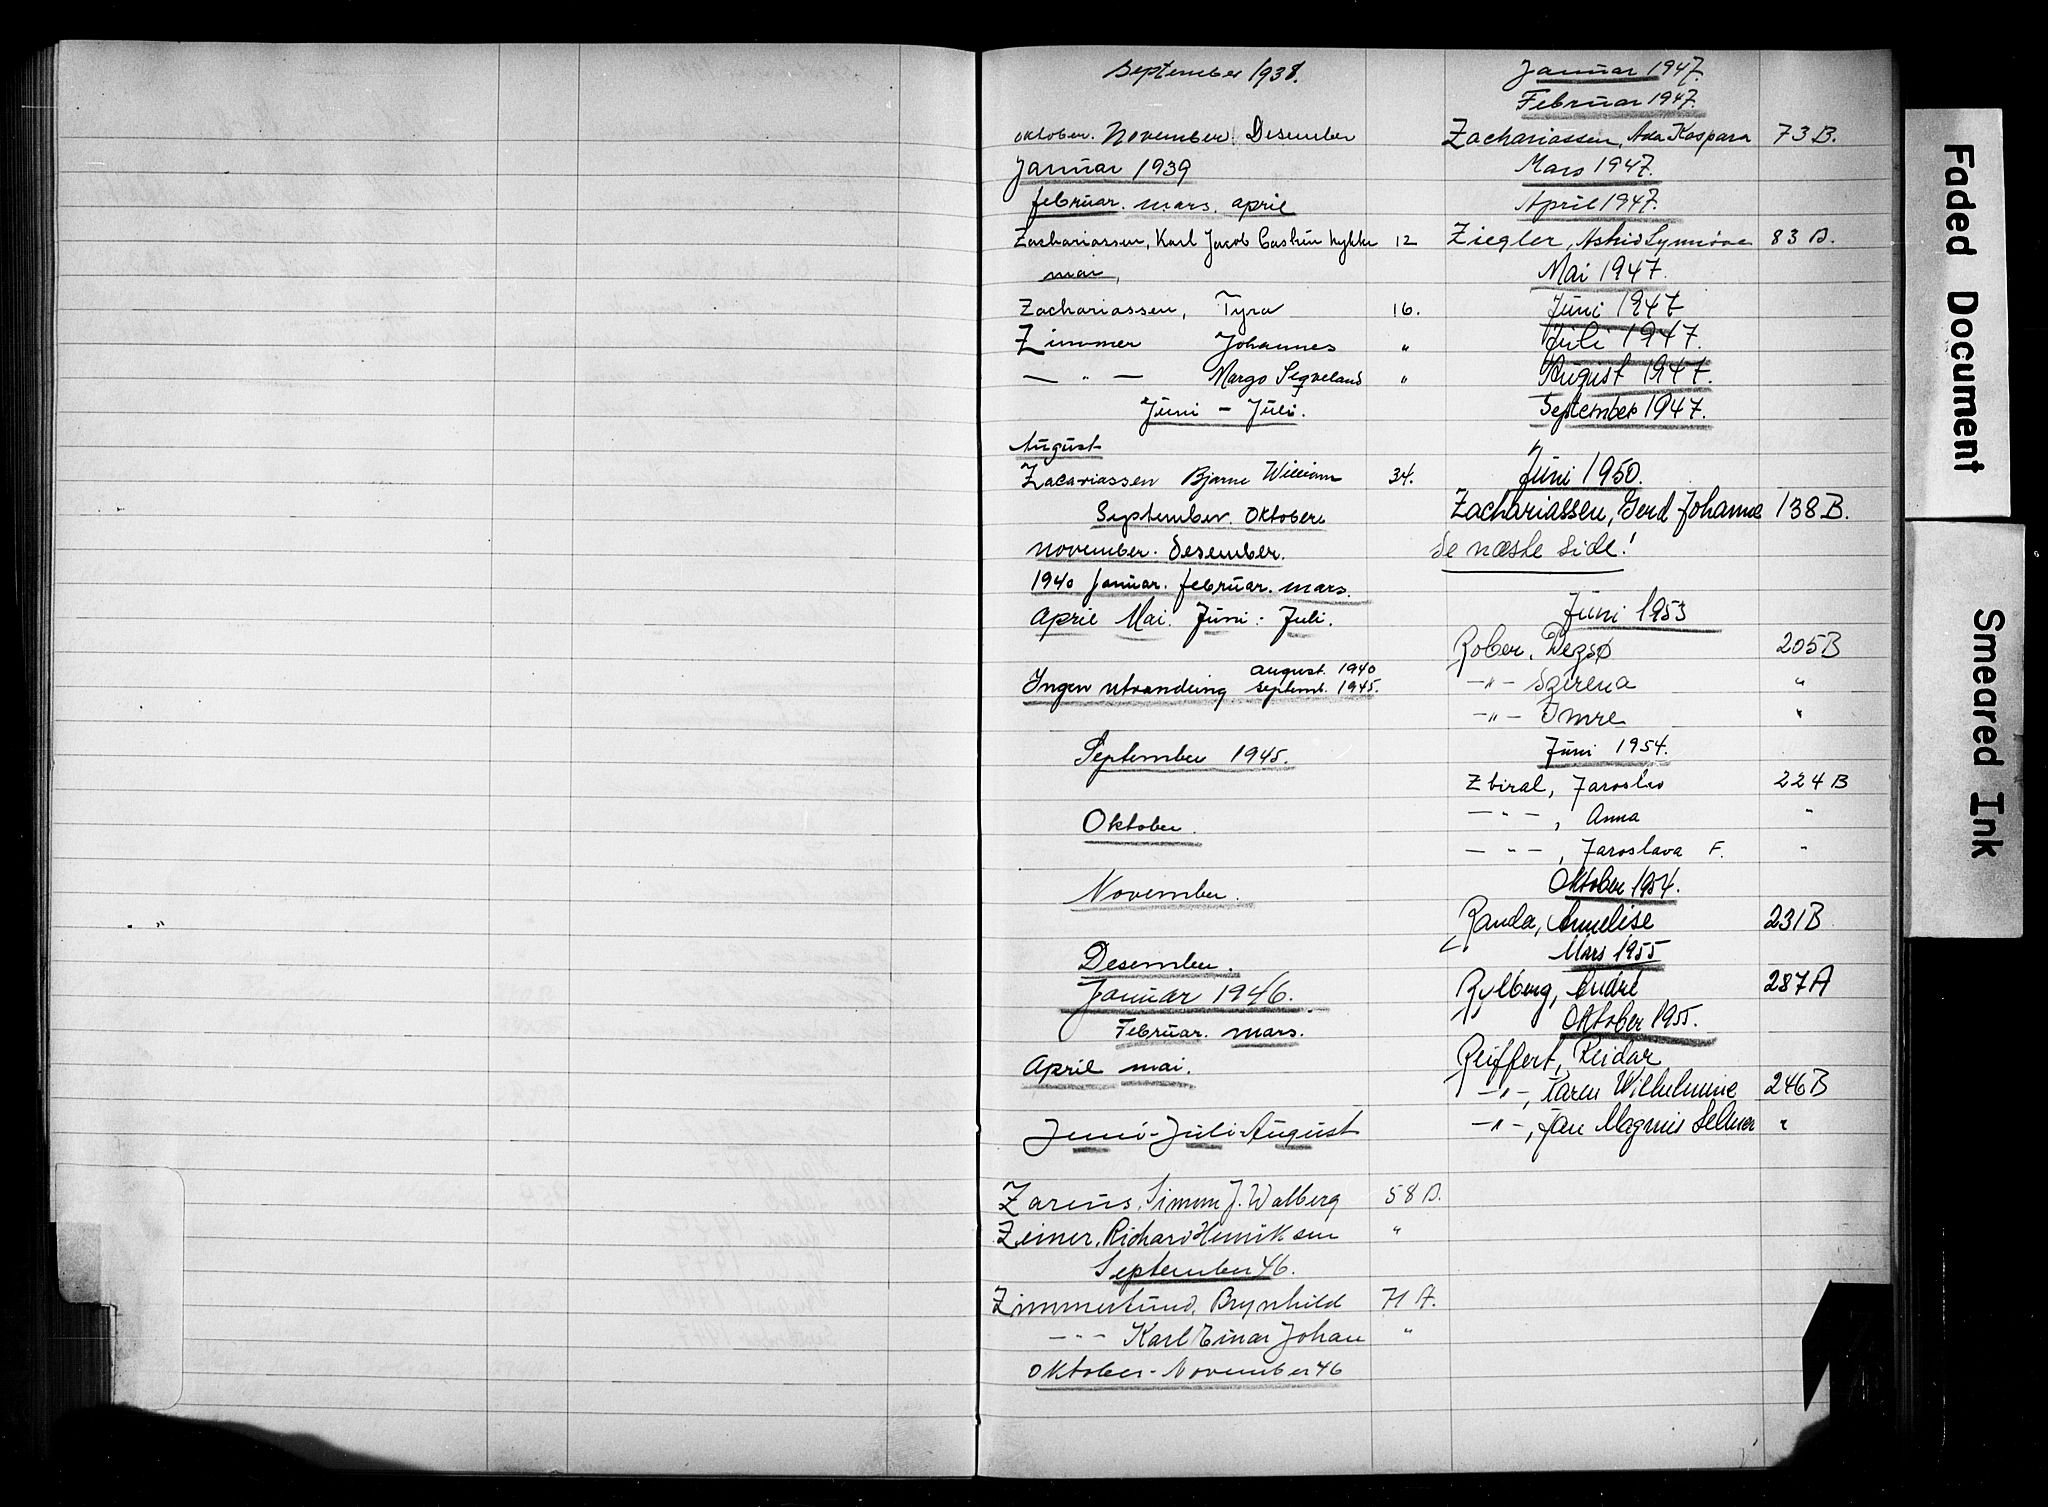 September 1938.
oktober. November. Desember
Januar 1939
februar. mars. april
Zachariassen, Karl Jacob 12
mai,
Zachariassen, Tyra 16.
Zimmer Johannes "
— " — Margo Sigveland "
Juni - Juli.
August
Zacariassen Bjarne William 34.
September. Oktober
november. desember.
1940 Januar. februar. mars.
April Mai. Juni. Juli.
Ingen utvandring august. 1940
septemb. 1945.
September 1945.
Oktober.
November.
Desember.
Januar 1946.
Februar. mars.
April mai.
Juni-Juli-August
Zareus, Simon J. Walberg 58 B.
Zeiner, Richard Henriksen "
September 46.
Zimmerlund, Brynhild 71 A.
- " - Karl Einar Johan "
Oktober-November 46
Januar 1947.
Februar 1947.
Zachariassen, Ada Kaspara 73 B.
Mars 1947.
April 1947.
Ziegler, Astrid Synnöve 83 B.
Mai 1947.
Juni 1947
Juli 1947.
August 1947.
September 1947.
Juni 1950.
Zachariassen, Gerd Johanna 138 B.
Se næste side!
Juni 1953
Rober, Degsø 205 B
-"- Szirena "
-"- Imre "
Juni 1954.
Zbiral, Jaroslav 224 B
- " -, Anna "
- " -, Jaroslava F. "
Oktober 1954.
Randa, Annelise 231 B
Mars 1955
Rylberg, André 287 A
Oktober 1955.
Reiffert, Reidar
-"-, Karen Wilhelmine 246 B
-"-, Jan Magnus Selmer "
Faded Document
Smeared Ink